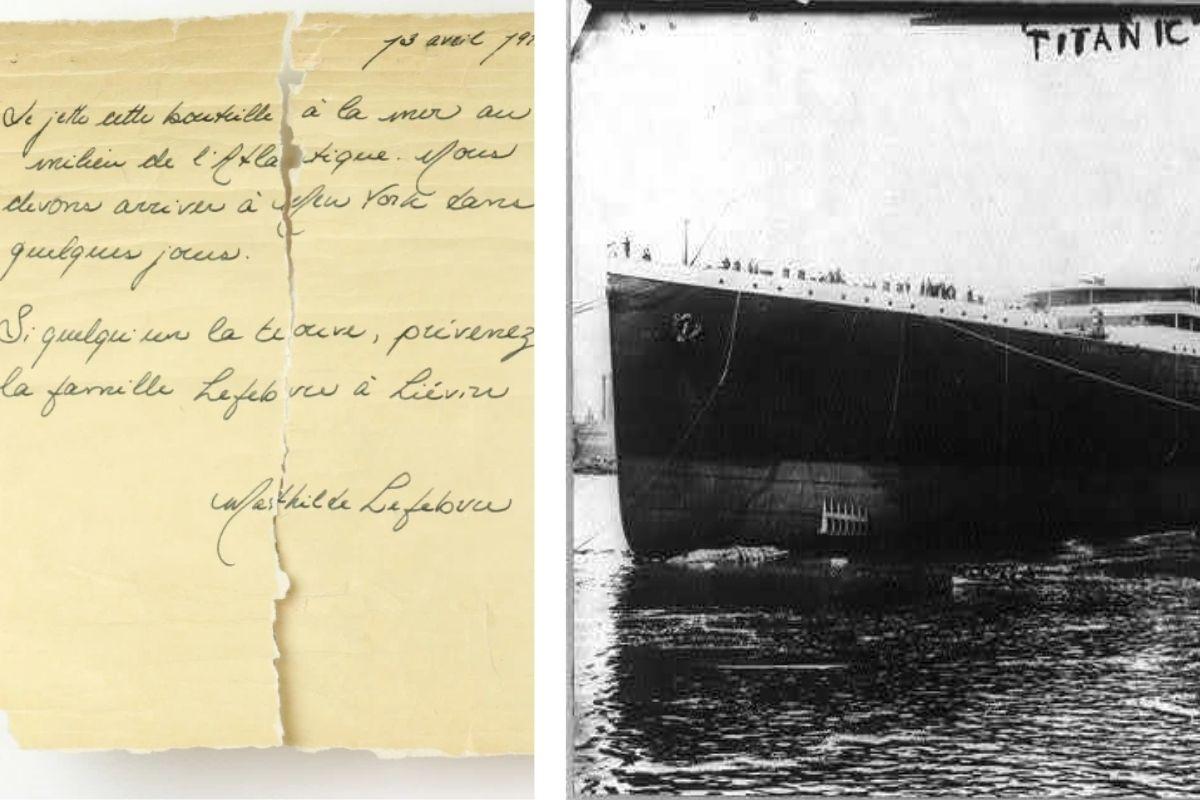 13 avril 191
Je jette cette bouteille à la mer au
milieu de l'Atlantique. Nous
devons arriver à New York dans
quelques jours.
Si quelqu'un la trouve, prévenez
la famille Lefebvre à Liévin
Mathilde Lefebvre
TITANIC